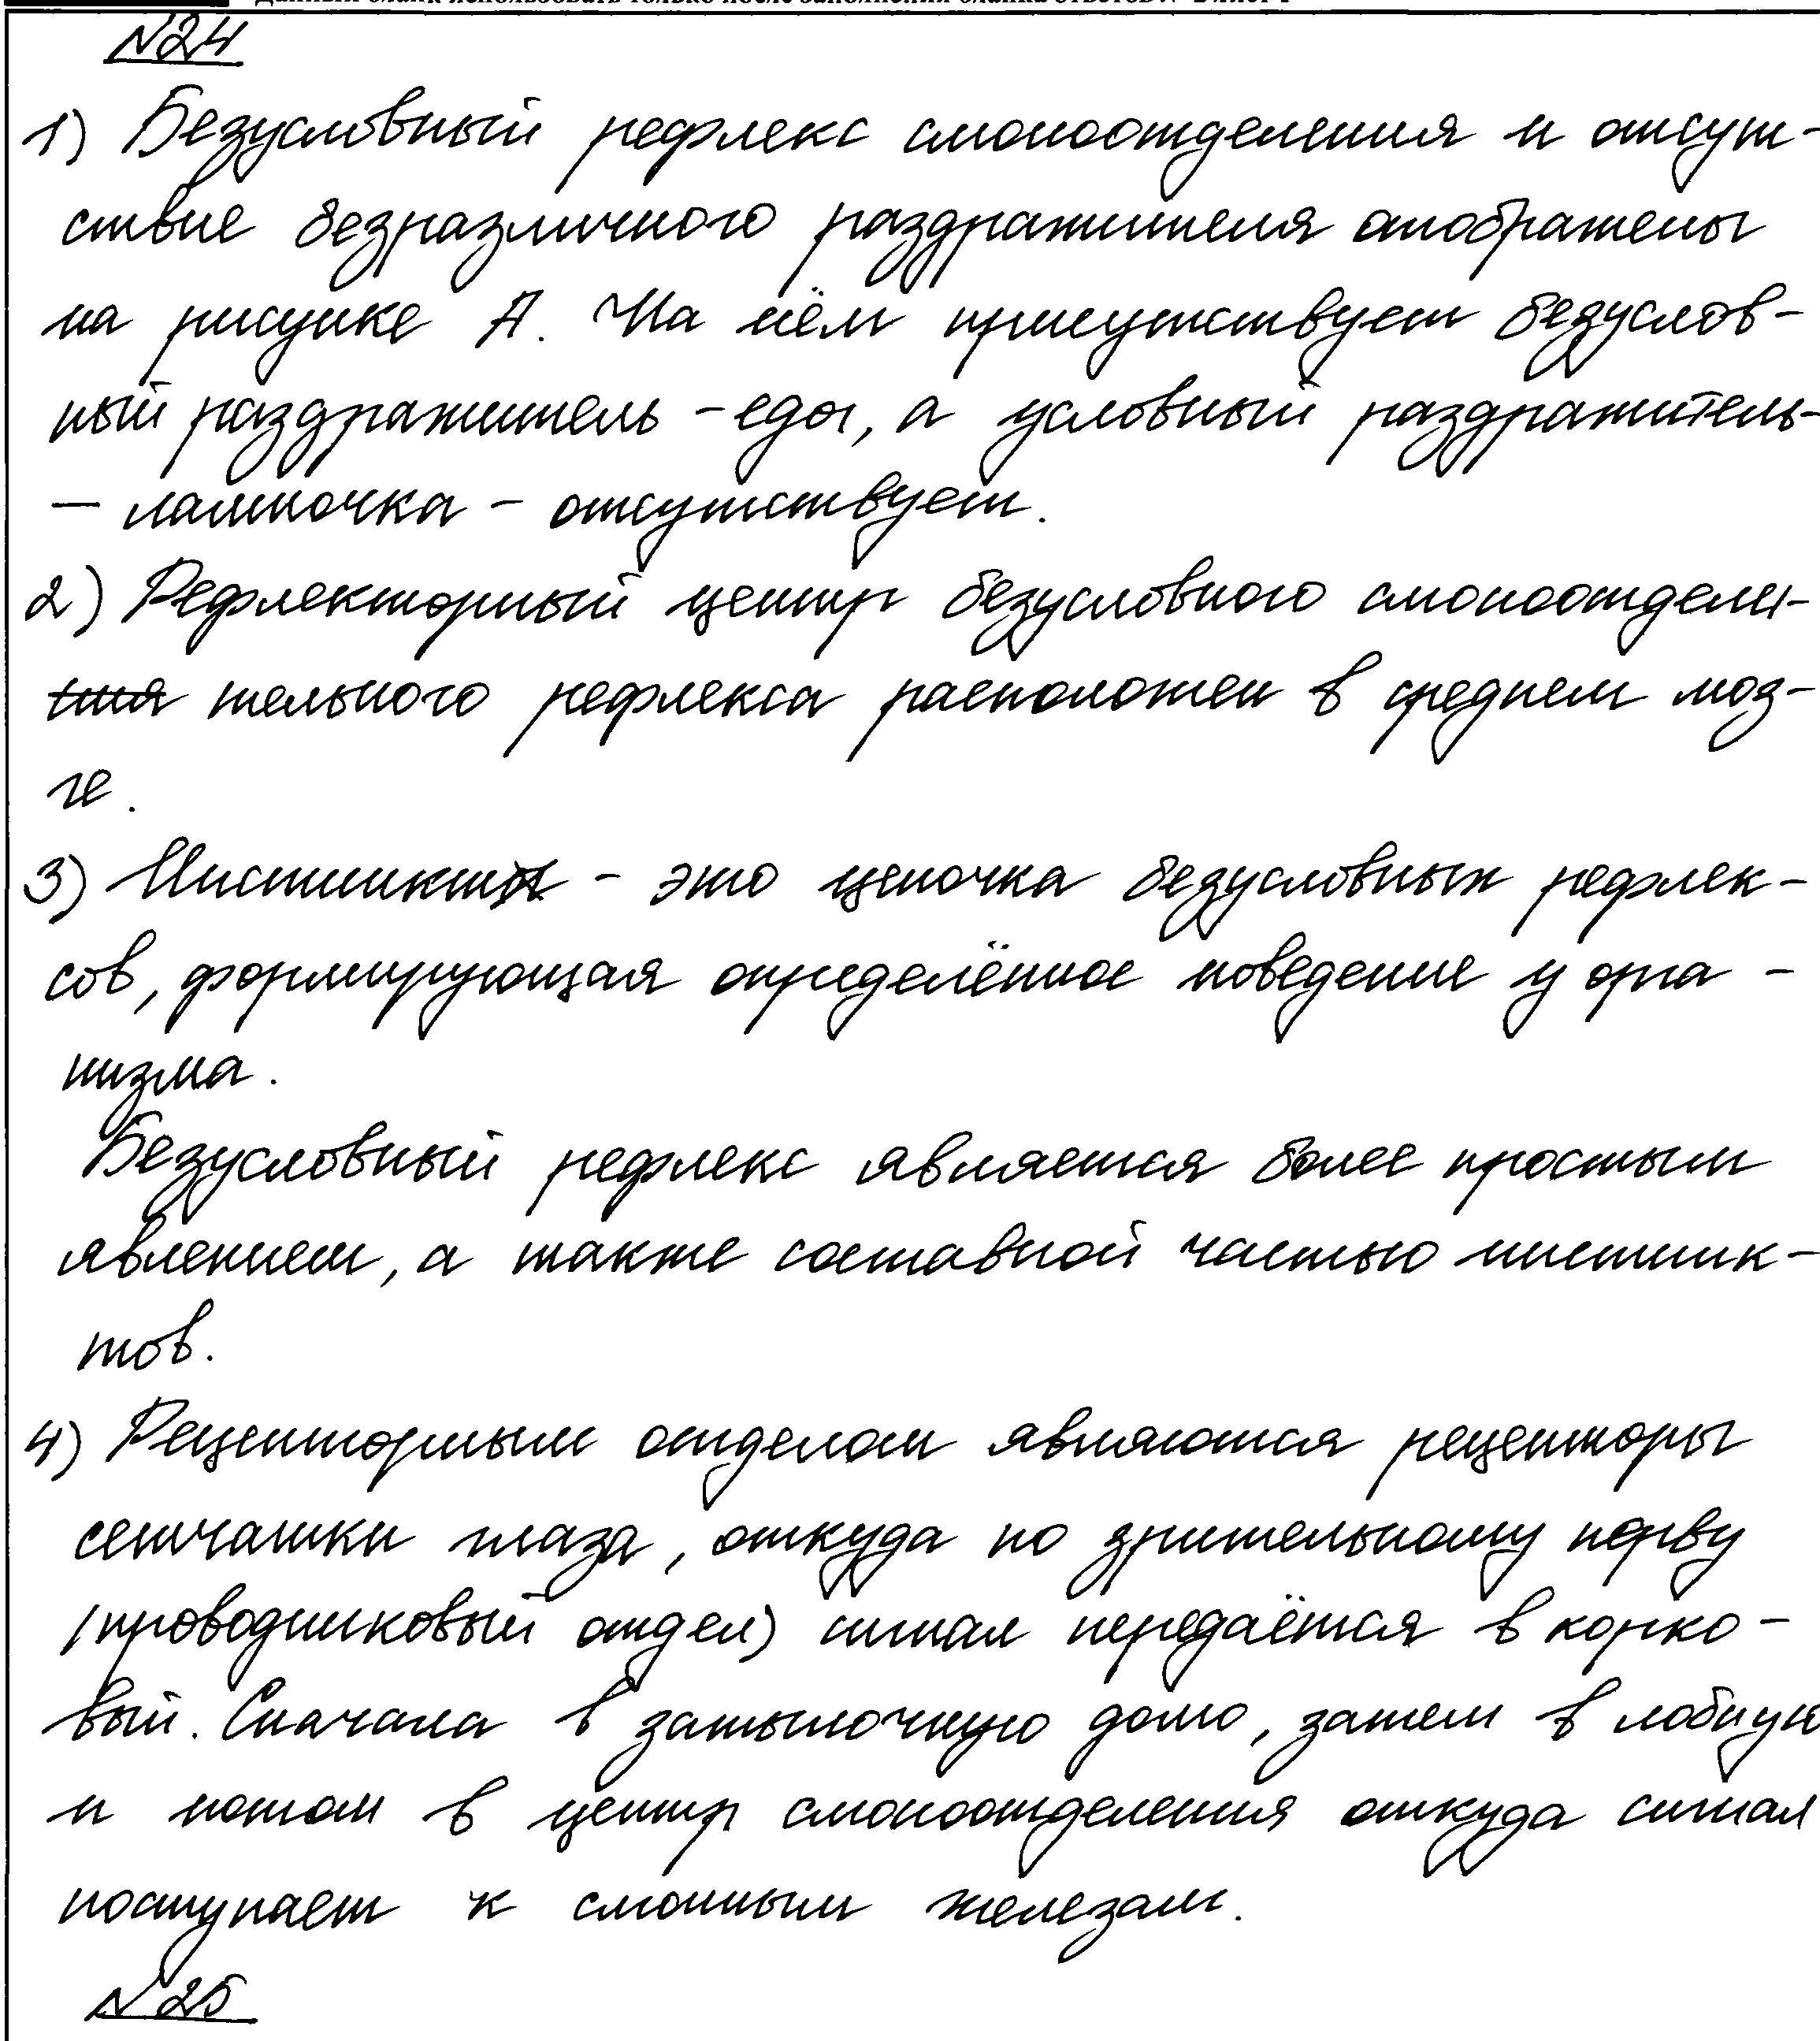 Данный бланк использовать только после заполнения бланка ответов № 2 лист 1
№24
1) Безусловный рефлекс слюноотделения и отсут-
ствие безразличного раздражителя отображены
на рисунке А. На нём присутствует безуслов-
ный раздражитель - еда, а условный раздражитель-
— лампочка - отсутствует.
2) Рефлекторный центр безусловного слюноотдели-
тельного рефлекса расположен в среднем моз-
ге.
3) Инстинкт - это цепочка безусловных рефлек-
сов, формирующая определённое поведение у орга-
низма.
Безусловный рефлекс является более простым
явлением, а также составной частью инстинк-
тов.
4) Рецепторным отделом являются рецепторы
сетчатки глаза, откуда по зрительному нерву
(проводниковый отдел) сигнал передаётся в корко-
вый. Сначала в затылочную долю, затем в лобную
и потом в центр слюноотделения откуда сигнал
поступает к слюнным железам.
№25